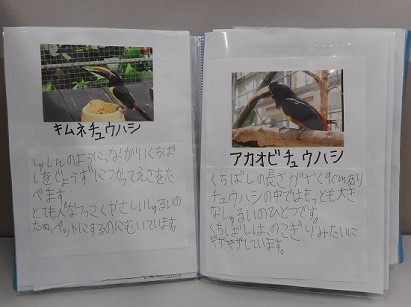 キムネチュウハシ
しゃしんのように、ながいくちば
しをじょうずにつかってえさをた
べます。
とても人なつっこくやさしいしゅるいの
ため、ペットにするのにむいています。
アカオビチュウハシ
くちばしの長さがやく9cmあり
チュウハシの中ではもっとも大き
なしゅるいのひとつです。
くちばしは、のこぎりみたいに
ギザギザしています。